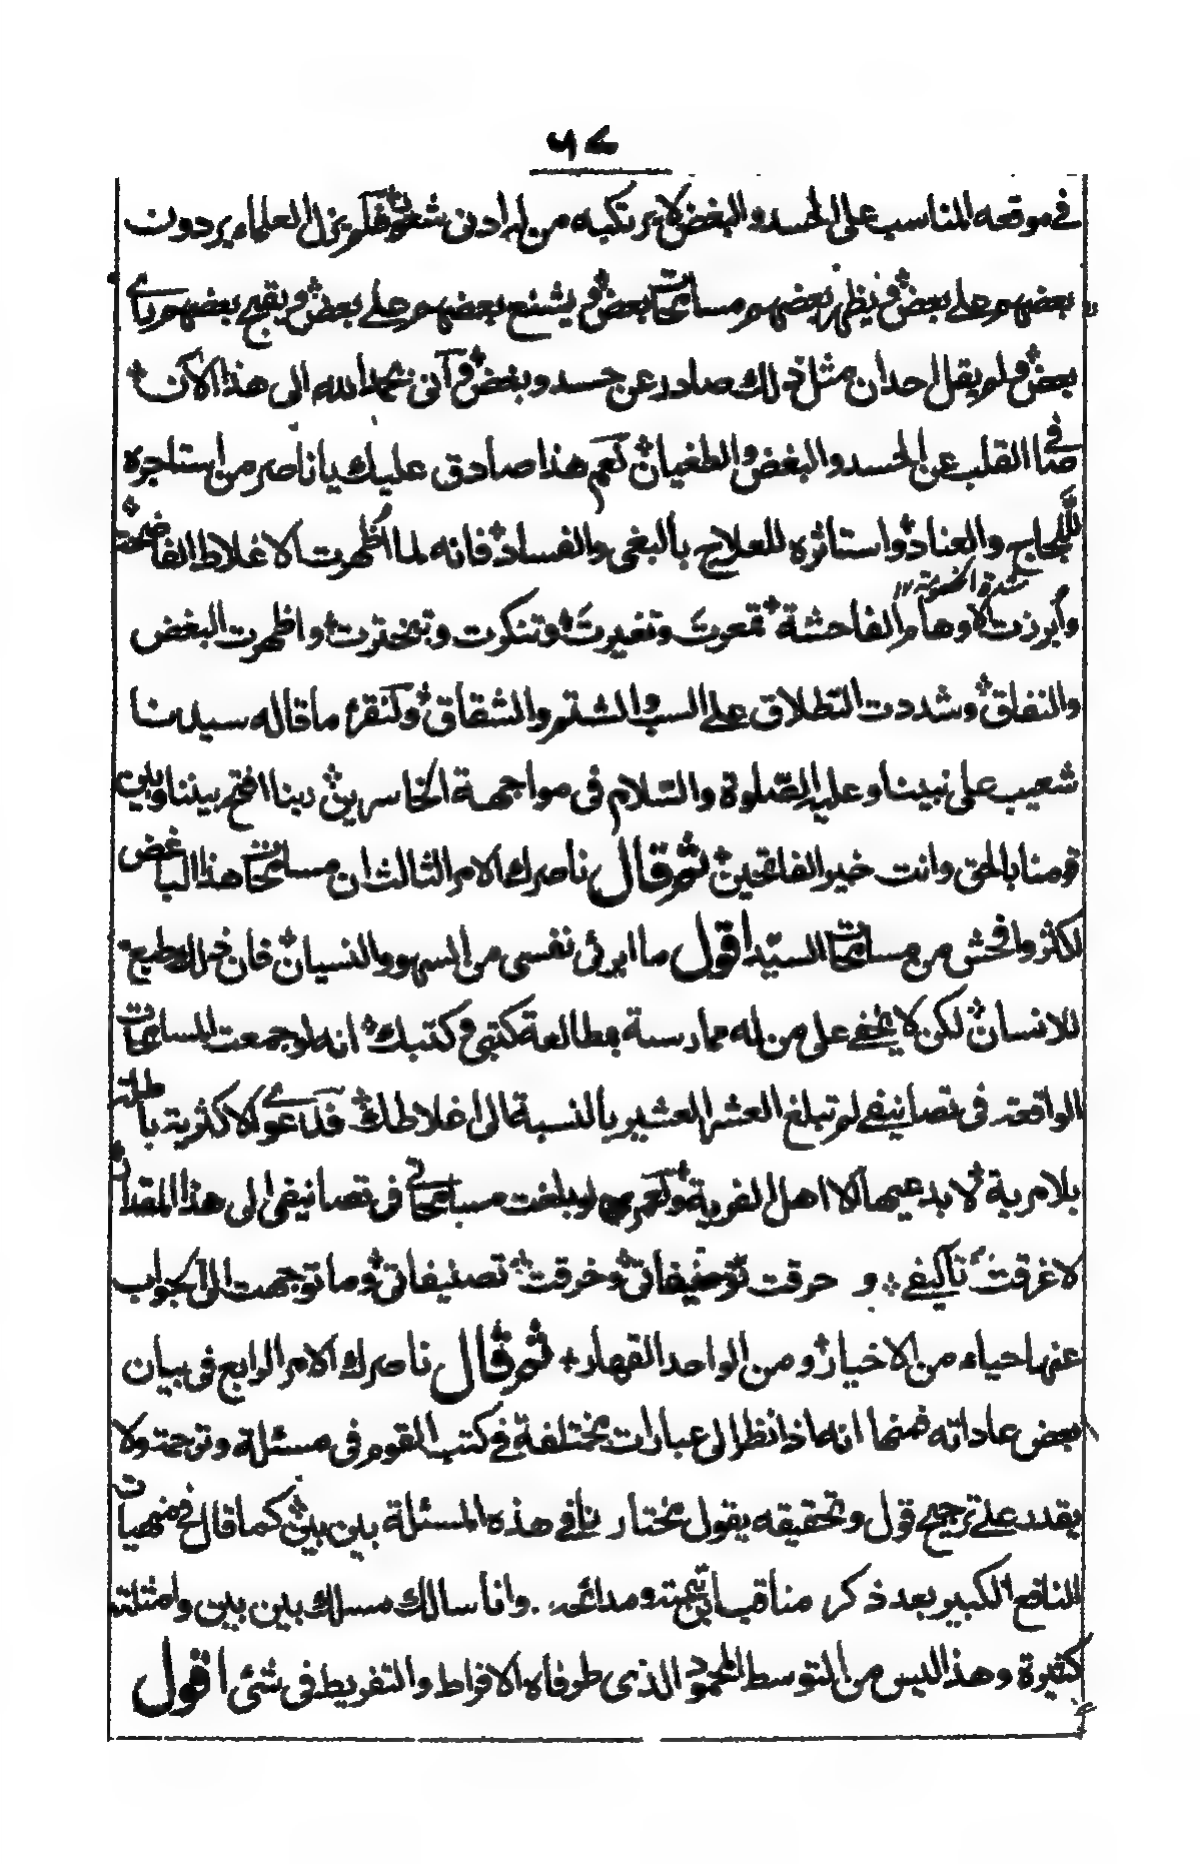 ٥٧
في موقعه المناسب على الحسد والبغض لا يرتكبه من له ادنى شعور فلم يزل العلماء يردون
بعضهم على بعض و يظهر بعضهم مسامحات بعض و يشنع بعضهم على بعض و يقبح بعضهم راي
بعض و لم يقل احد ان مثل ذلك صادر عن حسد وبغض و انى بحمد الله الى هذا الآن
صافي القلب عن الحسد والبغض والطغيان نعم هذا صادق عليك يا ناصر من استاجره
للجاج والعناد و استاثره للعلاج بالبغى والفساد فانه لما اظهرت الاغلاط الفاضحة
وابرزت الاوهام الفاحشة تمعرت وتغيرت وتنكرت وتبخترت و اظهرت البغض
شدة الخصومة ١٢
والنفاق وشددت النطلاق على السب والشتم والشقاق ولنقرأ ما قاله سيدنا
شعيب على نبينا وعليه الصلوة والسلام في مواجهة الخاسرين ربنا افتح بيننا وبين
قومنا بالحق وانت خير الفاتحين ثم قال ناصرك الامر الثالث ان مسامحات هذا الباغض
اكثر وافحش من مسامحات السيد اقول ما ابرئ نفسى من السهو والنسيان فان ذلك طبع
للانسان لكن لا يخفى على من له ممارسة بمطالعة كتبى و كتبك انه لو جمعت المسامحات
الواقعة فى تصانيفى لم تبلغ العشر العشير بالنسبة الى اغلاطك فدعوى الاكثرية باطلة
بلا مرية لا يدعيها الا اهل الفرية ولعمرى لو بلغت مسامحاتى فى تصانيفى الى هذا المقدار
لاغرقت تآليفى و حرقت توصيفاتى وخرقت تصنيفاتى وما توجهت الى الجواب
عنها حياء من الاخيار و من الواحد القهار ثم قال ناصرك الامر الرابع فى بيان
بعض عاداته فمنها انه اذا نظر الى عبارات مختلفة فى كتب القوم فى مسئلة وتوحمته ولا
يقدر على ترجيح قول وتحقيقه يقول مختارنا فى هذه المسئلة بين بين كما قال فى منهيات
النافع الكبير بعد ذكر مناقب ابن تيمية ومدائحه وانا سالك مسلك بين بين وامثلته
كثيرة وهذا ليس من التوسط المحمود الذى طرفاه الافراط والتفريط فى شئ اقول